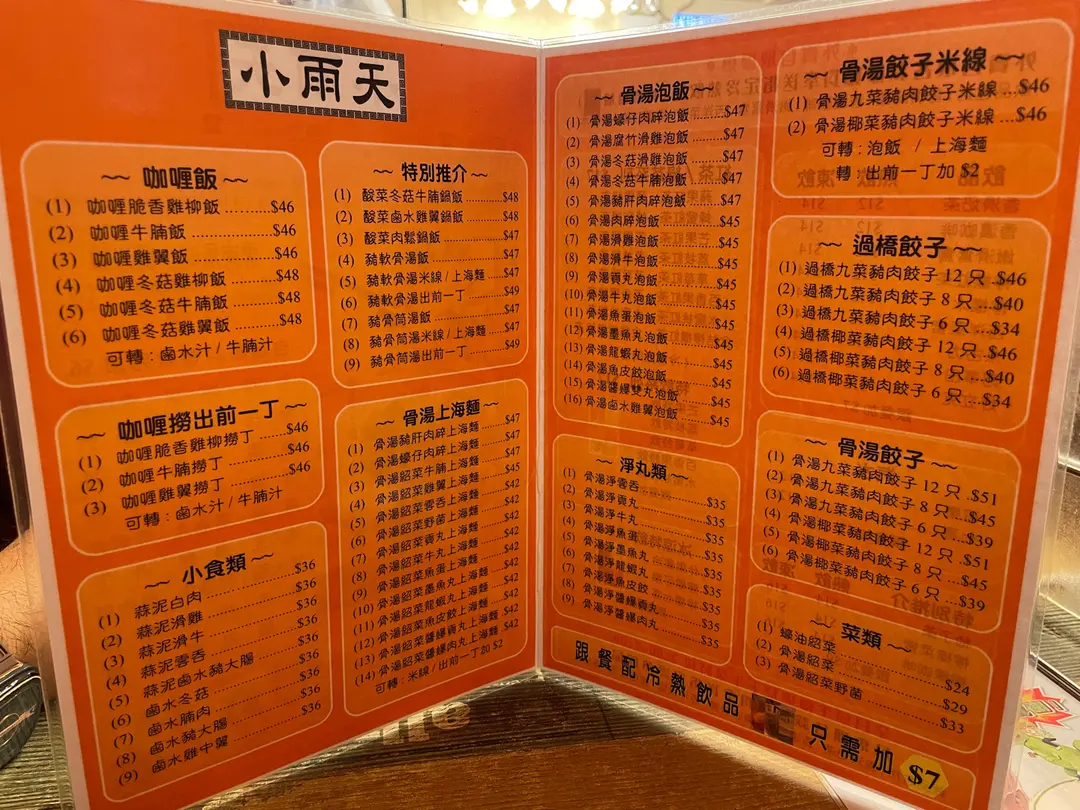 小雨天
～ 咖喱飯 ～
(1) 咖喱脆香雞柳飯 ......... $46
(2) 咖喱牛腩飯 ......... $46
(3) 咖喱雞翼飯 ......... $46
(4) 咖喱冬菇雞柳飯 ......... $48
(5) 咖喱冬菇牛腩飯 ......... $48
(6) 咖喱冬菇雞翼飯 ......... $48
可轉：鹵水汁 / 牛腩汁
～ 咖喱撈出前一丁 ～
(1) 咖喱脆香雞柳撈丁 ......... $46
(2) 咖喱牛腩撈丁 ......... $46
(3) 咖喱雞翼撈丁 ......... $46
可轉：鹵水汁 / 牛腩汁
～ 小食類 ～
(1) 蒜泥白肉 ......... $36
(2) 蒜泥滑雞 ......... $36
(3) 蒜泥滑牛 ......... $36
(4) 蒜泥雲吞 ......... $36
(5) 蒜泥鹵水豬大腸 ......... $36
(6) 鹵水冬菇 ......... $36
(7) 鹵水腩肉 ......... $36
(8) 鹵水豬大腸 ......... $36
(9) 鹵水雞中翼 ......... $36
～ 特別推介 ～
(1) 酸菜冬菇牛腩鍋飯 ......... $48
(2) 酸菜鹵水雞翼鍋飯 ......... $48
(3) 酸菜肉鬆鍋飯 ......... $47
(4) 豬軟骨湯飯 ......... $47
(5) 豬軟骨湯米線 / 上海麵 ......... $47
(6) 豬軟骨湯出前一丁 ......... $49
(7) 豬骨筒湯飯 ......... $47
(8) 豬骨筒湯米線 / 上海麵 ......... $47
(9) 豬骨筒湯出前一丁 ......... $49
～ 骨湯上海麵 ～
(1) 骨湯豬肝肉碎上海麵 ......... $47
(2) 骨湯蠔仔肉碎上海麵 ......... $47
(3) 骨湯紹菜牛腩上海麵 ......... $47
(4) 骨湯紹菜雞翼上海麵 ......... $45
(5) 骨湯紹菜雲吞上海麵 ......... $42
(6) 骨湯紹菜野菌上海麵 ......... $42
(7) 骨湯紹菜貢丸上海麵 ......... $42
(8) 骨湯紹菜牛丸上海麵 ......... $42
(9) 骨湯紹菜魚蛋上海麵 ......... $42
(10) 骨湯紹菜墨魚丸上海麵 ......... $42
(11) 骨湯紹菜龍蝦丸上海麵 ......... $42
(12) 骨湯紹菜魚皮餃上海麵 ......... $42
(13) 骨湯紹菜醬爆貢丸上海麵 ......... $42
(14) 骨湯紹菜醬爆肉丸上海麵 ......... $42
可轉：米線 / 出前一丁加 $2
～ 骨湯泡飯 ～
(1) 骨湯蠔仔肉碎泡飯 ......... $47
(2) 骨湯腐竹滑雞泡飯 ......... $47
(3) 骨湯冬菇滑雞泡飯 ......... $47
(4) 骨湯冬菇牛腩泡飯 ......... $47
(5) 骨湯豬肝肉碎泡飯 ......... $47
(6) 骨湯肉碎泡飯 ......... $45
(7) 骨湯滑雞泡飯 ......... $45
(8) 骨湯滑牛泡飯 ......... $45
(9) 骨湯貢丸泡飯 ......... $45
(10) 骨湯牛丸泡飯 ......... $45
(11) 骨湯魚蛋泡飯 ......... $45
(12) 骨湯墨魚丸泡飯 ......... $45
(13) 骨湯龍蝦丸泡飯 ......... $45
(14) 骨湯魚皮餃泡飯 ......... $45
(15) 骨湯醬爆雙丸泡飯 ......... $45
(16) 骨湯鹵水雞翼泡飯 ......... $45
～ 淨丸類 ～
(1) 骨湯淨雲吞 ......... $35
(2) 骨湯淨貢丸 ......... $35
(3) 骨湯淨牛丸 ......... $35
(4) 骨湯淨魚蛋 ......... $35
(5) 骨湯淨墨魚丸 ......... $35
(6) 骨湯淨龍蝦丸 ......... $35
(7) 骨湯淨魚皮餃 ......... $35
(8) 骨湯淨醬爆貢丸 ......... $35
(9) 骨湯淨醬爆肉丸 ......... $35
～ 骨湯餃子米線 ～
(1) 骨湯九菜豬肉餃子米線 ...$46
(2) 骨湯椰菜豬肉餃子米線 ...$46
可轉：泡飯 / 上海麵
轉：出前一丁加 $2
～ 過橋餃子 ～
(1) 過橋九菜豬肉餃子 12 只 ..$46
(2) 過橋九菜豬肉餃子 8 只 ...$40
(3) 過橋九菜豬肉餃子 6 只 ...$34
(4) 過橋椰菜豬肉餃子 12 只 ..$46
(5) 過橋椰菜豬肉餃子 8 只 ...$40
(6) 過橋椰菜豬肉餃子 6 只 ...$34
～ 骨湯餃子 ～
(1) 骨湯九菜豬肉餃子 12 只 ..$51
(2) 骨湯九菜豬肉餃子 8 只 ...$45
(3) 骨湯九菜豬肉餃子 6 只 ...$39
(4) 骨湯椰菜豬肉餃子 12 只 ..$51
(5) 骨湯椰菜豬肉餃子 8 只 ...$45
(6) 骨湯椰菜豬肉餃子 6 只 ...$39
～ 菜類 ～
(1) 蠔油紹菜 ......... $24
(2) 骨湯紹菜 ......... $29
(3) 骨湯紹菜野菌 ......... $33
跟餐配冷熱飲品 只需加 $7